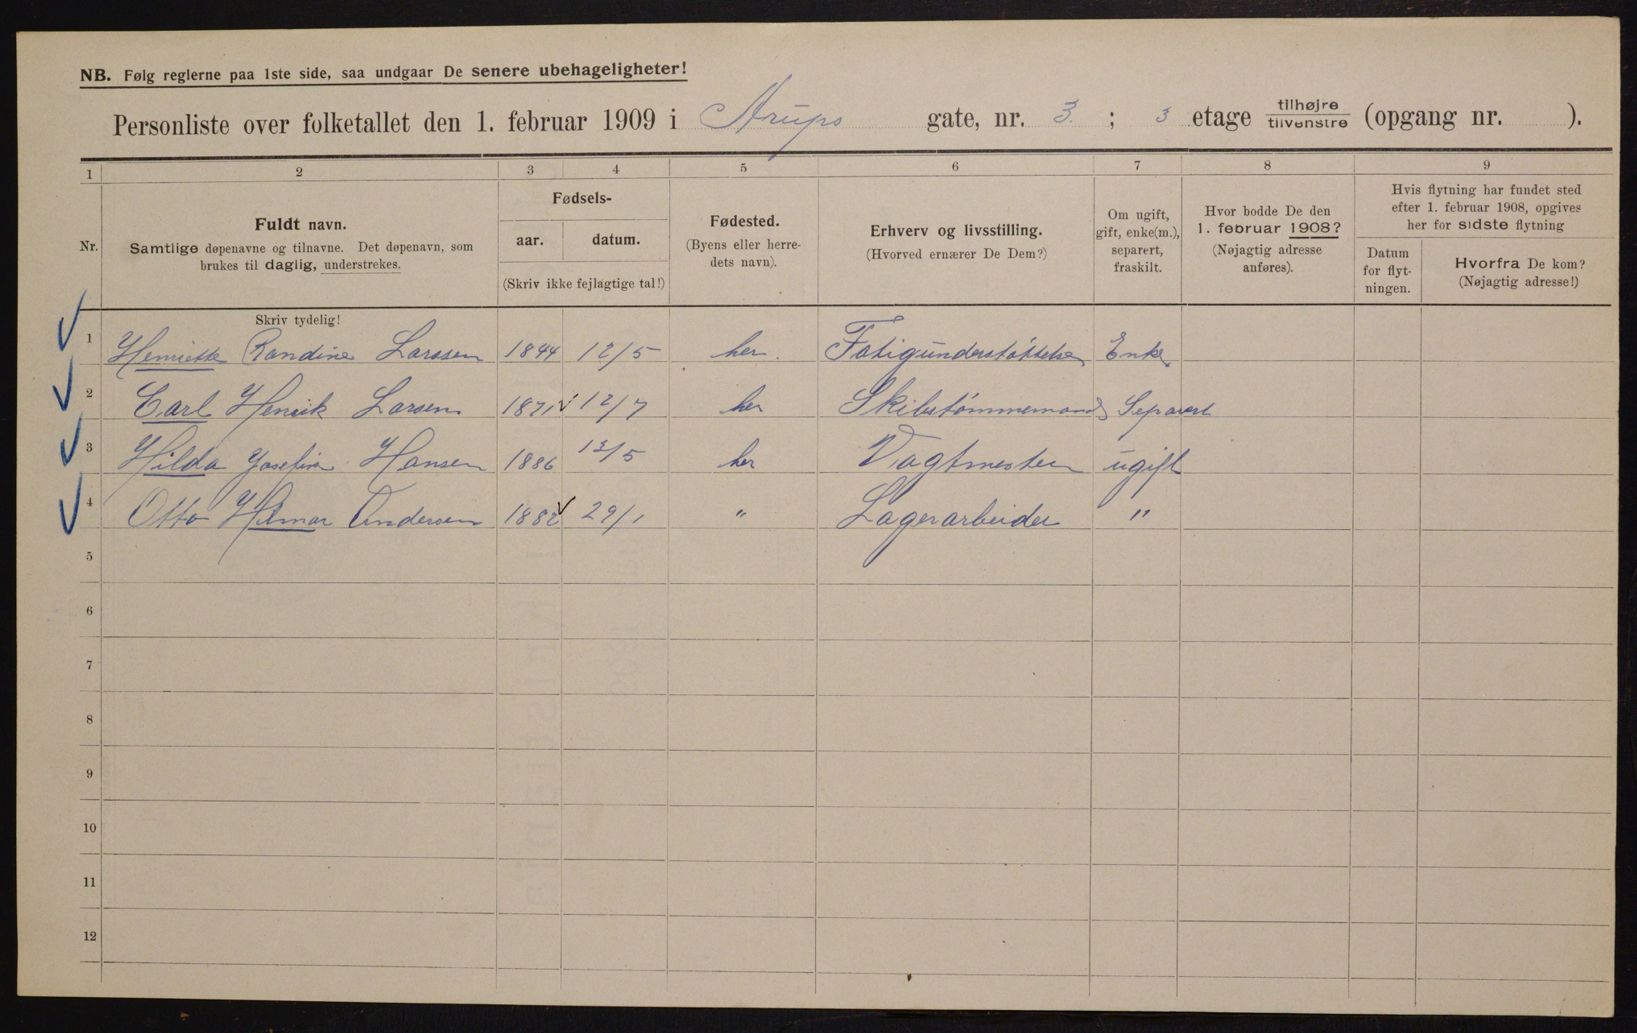 NB. Følg reglerne paa 1ste side, saa undgaar De senere ubehageligheter!
Personliste over folketallet den 1. februar 1909 i Arups gate, nr. 3. ; 3 etage tilhøjre tilvenstre (opgang nr. ).
1 2 3 4 5 6 7 8 9
Nr.
Fuldt navn.
Samtlige døpenavne og tilnavne. Det døpenavn, som
brukes til daglig, understrekes.
Skriv tydelig!
Fødsels-
aar. datum.
(Skriv ikke fejlagtige tal!)
Fødested.
(Byens eller herre-
dets navn).
Erhverv og livsstilling.
(Hvorved ernærer De Dem?)
Om ugift,
gift, enke(m.),
separert,
fraskilt.
Hvor bodde De den
1. februar 1908?
(Nøjagtig adresse
anføres).
Hvis flytning har fundet sted
efter 1. februar 1908, opgives
her for sidste flytning
Datum
for flyt-
ningen.
Hvorfra De kom?
(Nøjagtig adresse!)
1 Henriette Randine Larssen 1844 12/5 her. Fatigunderstøttelse Enke
2 Carl Henrik Larsen 1871 12/7 her Skibstømmermand Separert
3 Hilda Josefine Hansen 1886 13/5 her ugift
4 Otto Hilmar Andersen 1882 29/1 " Lagerarbeider "
5
6
7
8
9
10
11
12